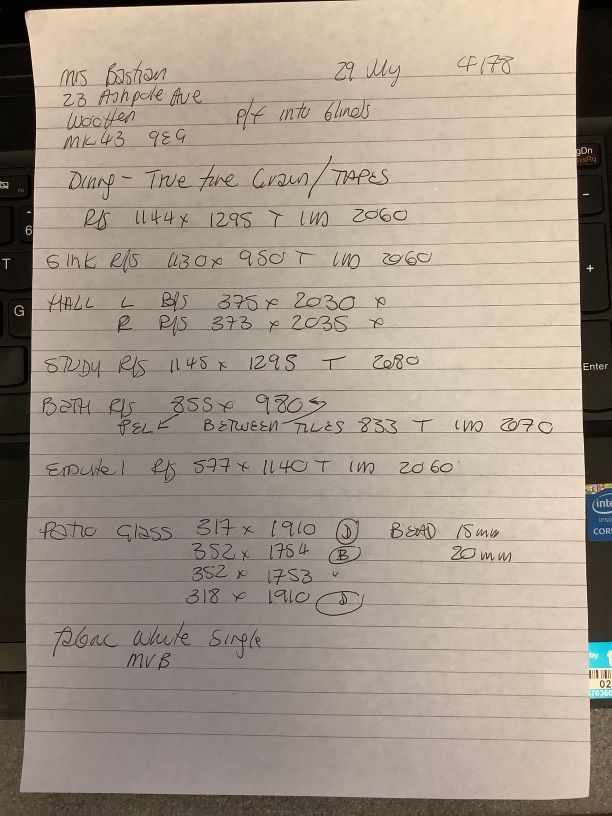 Mrs Bastian 29 July 4178
23 Ashpole Ave
Wootten
MK43 9EG p/f into blinds
Dining - True fine Grain / TAPES
R/S 1144 x 1295 T IW 2060
Sink R/S 430 x 950 T IW 2060
HALL L B/S 375 x 2030 x
R R/S 373 x 2035 x
STUDY R/S 1145 x 1295 T 2080
BATH R/S 855 x 980
PEL BETWEEN TILES 833 T IW 2070
R/S 577 x 1140 T IW 2060
Patio Glass 317 x 1910 D BEAD 15mm
352 x 1754 B 20mm
352 x 1753 "
318 x 1910 D
White Single
MVB
gDn
SysRq
6
T
G
+
Enter
inte
insid
COR
by
02